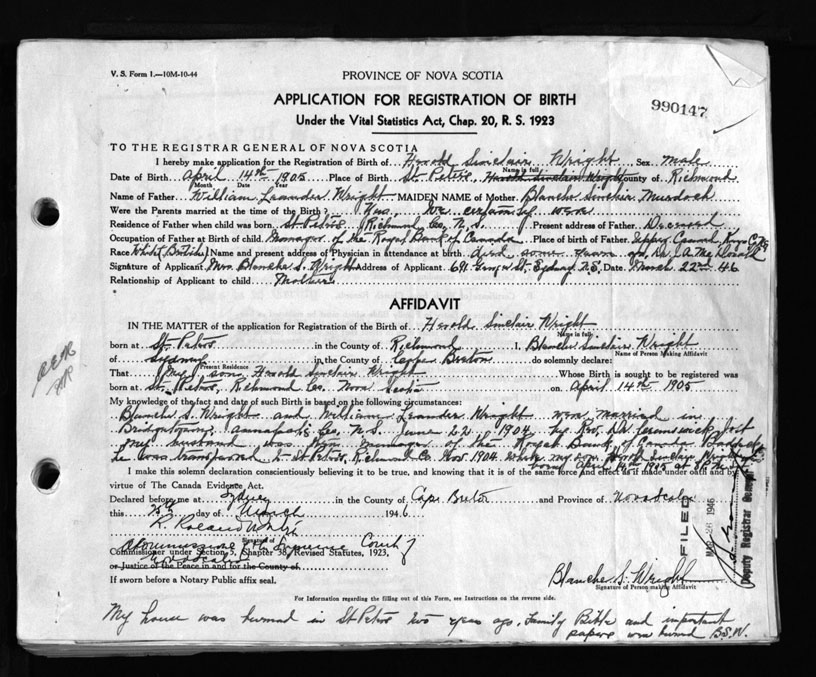 V. S. Form 1.—10M-10-44
PROVINCE OF NOVA SCOTIA
APPLICATION FOR REGISTRATION OF BIRTH
990147
Under the Vital Statistics Act, Chap. 20, R. S. 1923
TO THE REGISTRAR GENERAL OF NOVA SCOTIA
I hereby make application for the Registration of Birth of Harold Sinclair Wright Sex Male
Name in full
Date of Birth April 14th 1905 Place of Birth St. Peters, Harold Sinclair Wright County of Richmond
Month Date Year
Name of Father William Leander Wright MAIDEN NAME of Mother Blanche Sinclair Murdoch
Were the Parents married at the time of the Birth? Yes, We certainly were
Residence of Father when child was born St. Peters, Richmond Co., N. S. Present address of Father Deceased
Occupation of Father at Birth of child Manager of the Royal Bank of Canada Place of birth of Father Upper Canard Kings Co. N.S.
Race White (British) Name and present address of Physician in attendance at birth died some years ago, Dr.
Signature of Applicant Mrs. Blanche S. Wright Address of Applicant 691 George St. Sydney N.S. Date March 22nd 46
Relationship of Applicant to child Mother
AFFIDAVIT
IN THE MATTER of the application for Registration of the Birth of Harold Sinclair Wright
Name in full
born at St. Peters in the County of Richmond I, Blanche Sinclair Wright
Name of Person Making Affidavit
of Sydney in the County of Cape Breton do solemnly declare:
Present Residence
That My son, Harold Sinclair Wright Whose Birth is sought to be registered was
born at St. Peters, Richmond Co. Nova Scotia on April 14th 1905
My knowledge of the fact and date of such Birth is based on the following circumstances:
Blanche S. Wright and William Leander Wright were married in
Bridgetown, Annapolis Co., N.S. June 22 1904 by Rev. Dr.
My husband was then manager of the Royal Bank of Canada Baddeck
he was transferred to St. Peters, Richmond Co. Nov. 1904 where my son Harold Sinclair Wright
born April 14th 1905 at
I make this solemn declaration conscientiously believing it to be true, and knowing that it is of the same force and effect as if made under oath and by
virtue of The Canada Evidence Act.
Declared before me at Sydney in the County of Cape Breton and Province of Nova Scotia
this 25th day of March 1946
Signature of
A Commissioner of the Supreme Court of
Commissioner under Section 5, Chapter 38, Revised Statutes, 1923,
Nova Scotia
or Justice of the Peace in and for the County of
If sworn before a Notary Public affix seal.
FILED
MAR 26 1946
Deputy Registrar General
Blanche S. Wright
Signature of Person making Affidavit
For Information regarding the filling out of this Form, see Instructions on the reverse side.
My house was burned in St Peters two years ago. Family Bible and important
papers were burned B.S.W.